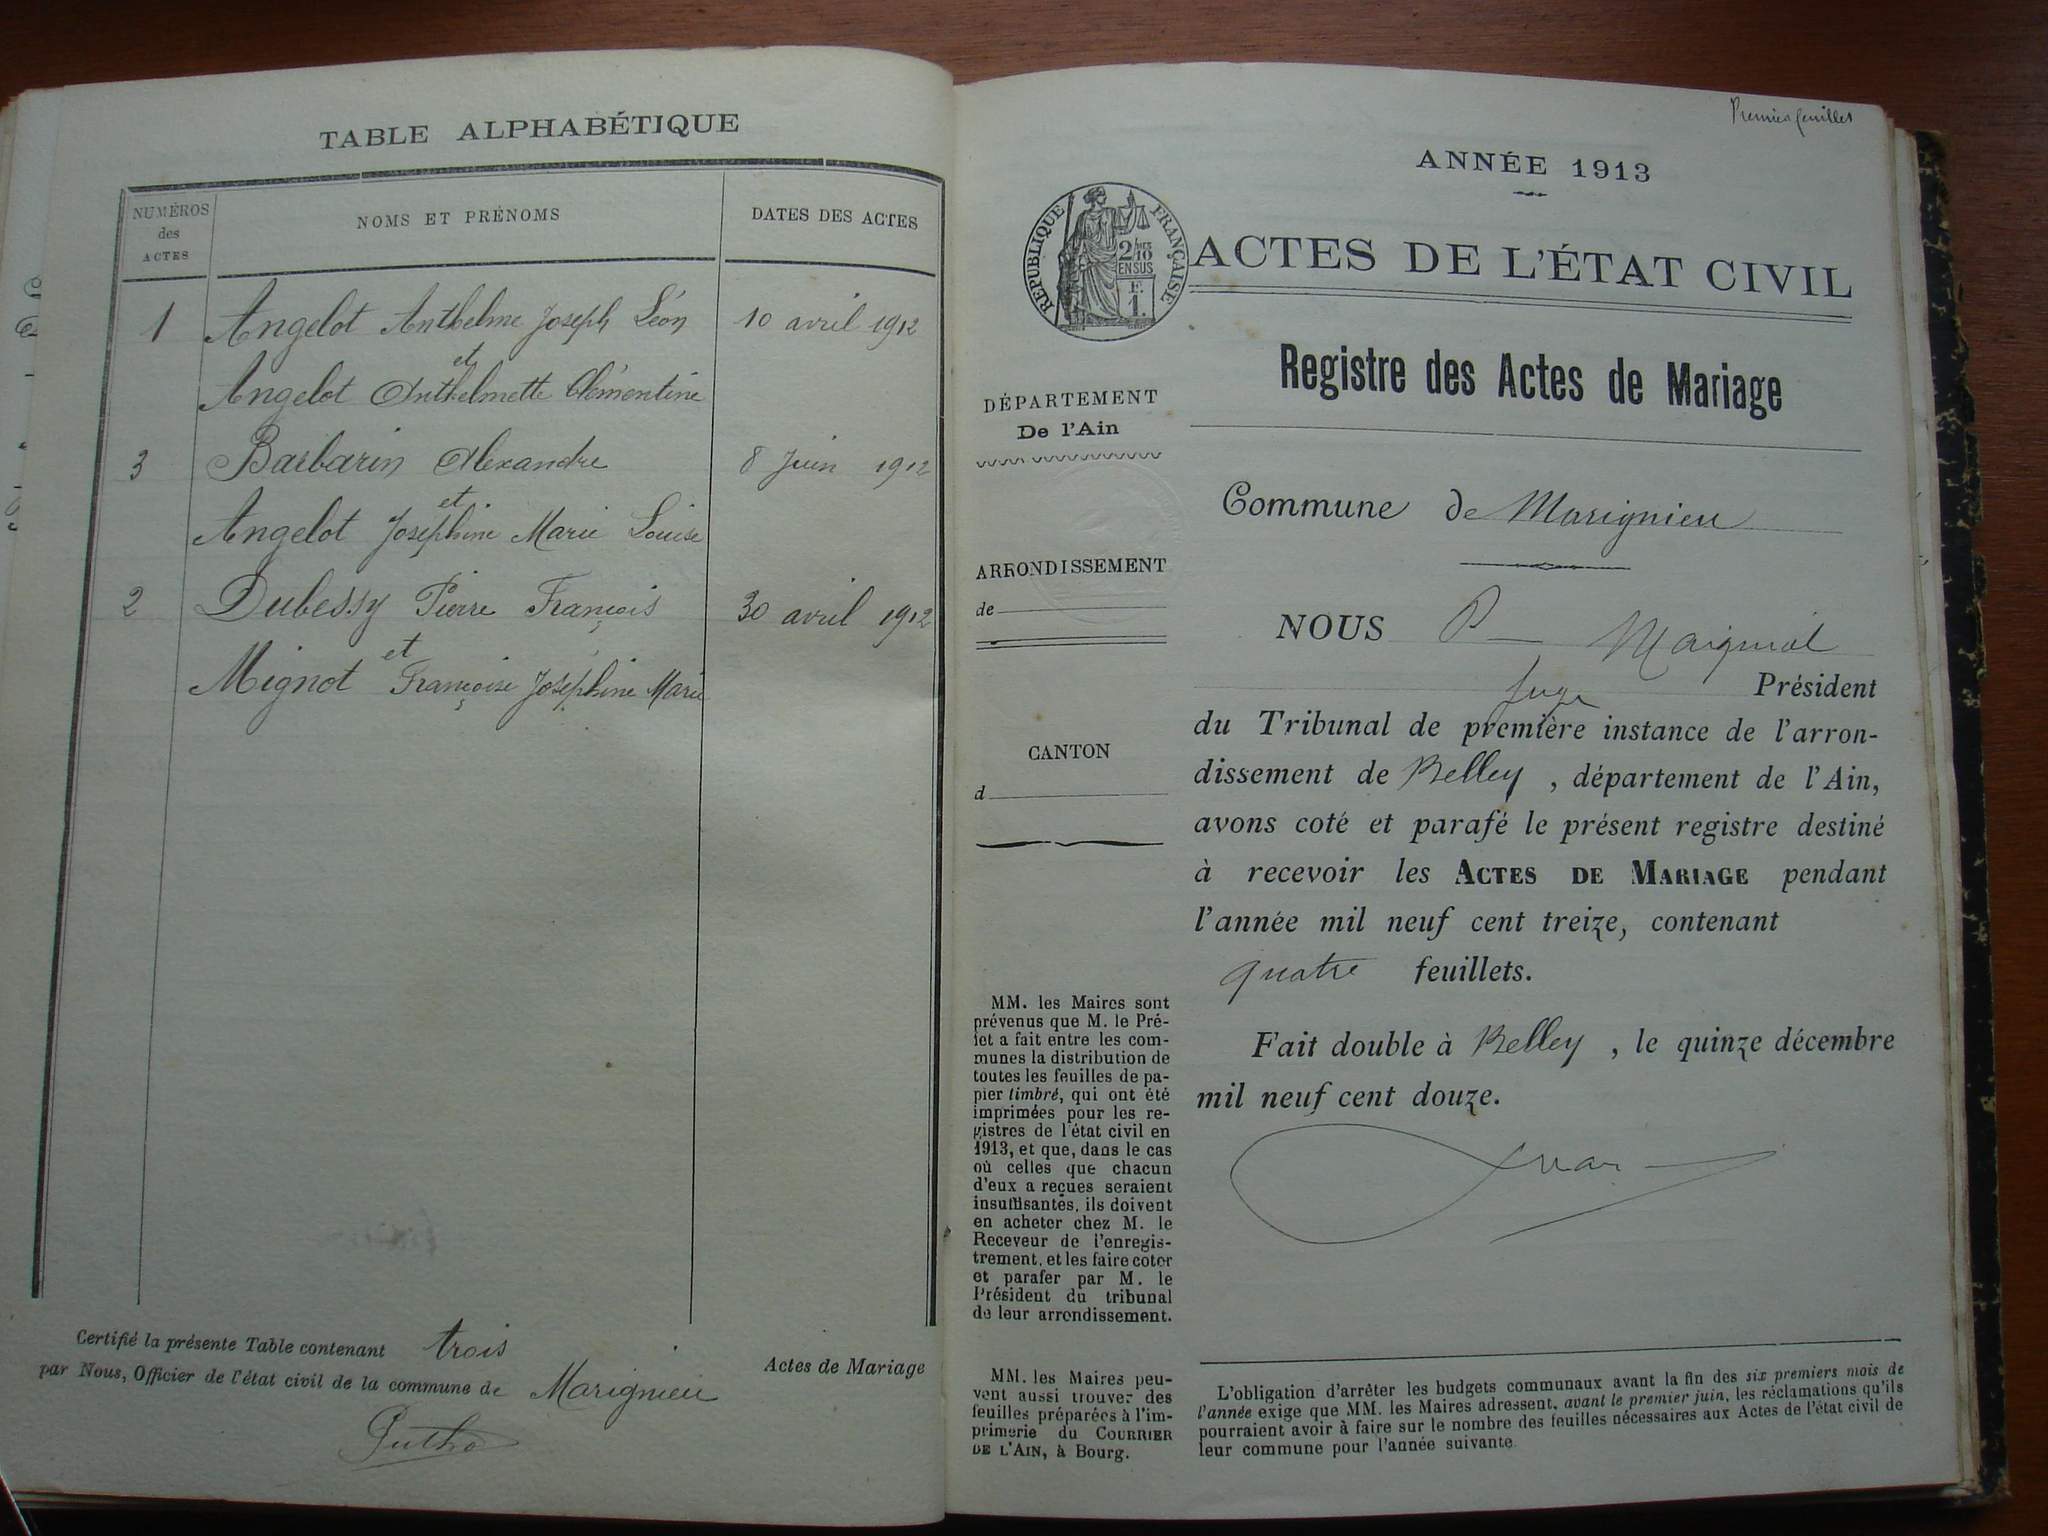 TABLE ALPHABÉTIQUE
NUMÉROS
des
ACTES
NOMS ET PRÉNOMS
DATES DES ACTES
1 Angelot Anthelme Joseph Léon 10 avril 1912
et
Angelot Anthelmette Clémentine
3 Barbarin Alexandre 8 Juin 1912
et
Angelot Joséphine Marie Louise
2 Dubessy Pierre François 30 avril 1912
et
Mignot Françoise Joséphine Marie
Certifié la présente Table contenant trois Actes de Mariage
par Nous, Officier de l'état civil de la commune de Marignieu
Premier feuillet
ANNÉE 1913
RÉPUBLIQUE FRANÇAISE
2/10
EN SUS
F.
1.
ACTES DE L'ÉTAT CIVIL
Registre des Actes de Mariage
DÉPARTEMENT
De l'Ain
ARRONDISSEMENT
de
CANTON
d
Commune de Marignieu
NOUS P
Juge Président
du Tribunal de première instance de l'arron-
dissement de Belley, département de l'Ain,
avons coté et parafé le présent registre destiné
à recevoir les ACTES DE MARIAGE pendant
l'année mil neuf cent treize, contenant
quatre feuillets.
Fait double à Belley, le quinze décembre
mil neuf cent douze.
MM. les Maires sont
prévenus que M. le Pré-
fet a fait entre les com-
munes la distribution de
toutes les feuilles de pa-
pier timbré, qui ont été
imprimées pour les re-
gistres de l'état civil en
1913, et que, dans le cas
où celles que chacun
d'eux a reçues seraient
insuffisantes, ils doivent
en acheter chez M. le
Receveur de l'enregis-
trement, et les faire coter
et parafer par M. le
Président du tribunal
de leur arrondissement.
MM. les Maires peu-
vent aussi trouver des
feuilles préparées à l'im-
primerie du COURRIER
DE L'AIN, à Bourg.
L'obligation d'arrêter les budgets communaux avant la fin des six premiers mois de
l'année exige que MM. les Maires adressent, avant le premier juin, les réclamations qu'ils
pourraient avoir à faire sur le nombre des feuilles nécessaires aux Actes de l'état civil de
leur commune pour l'année suivante.